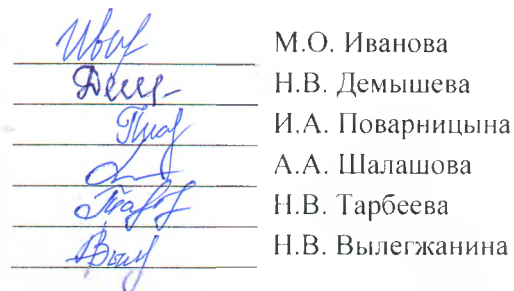 М.О. Иванова
Н.В. Демышева
И.А. Поварницына
А.А. Шалашова
Н.В. Тарбеева
Н.В. Вылегжанина